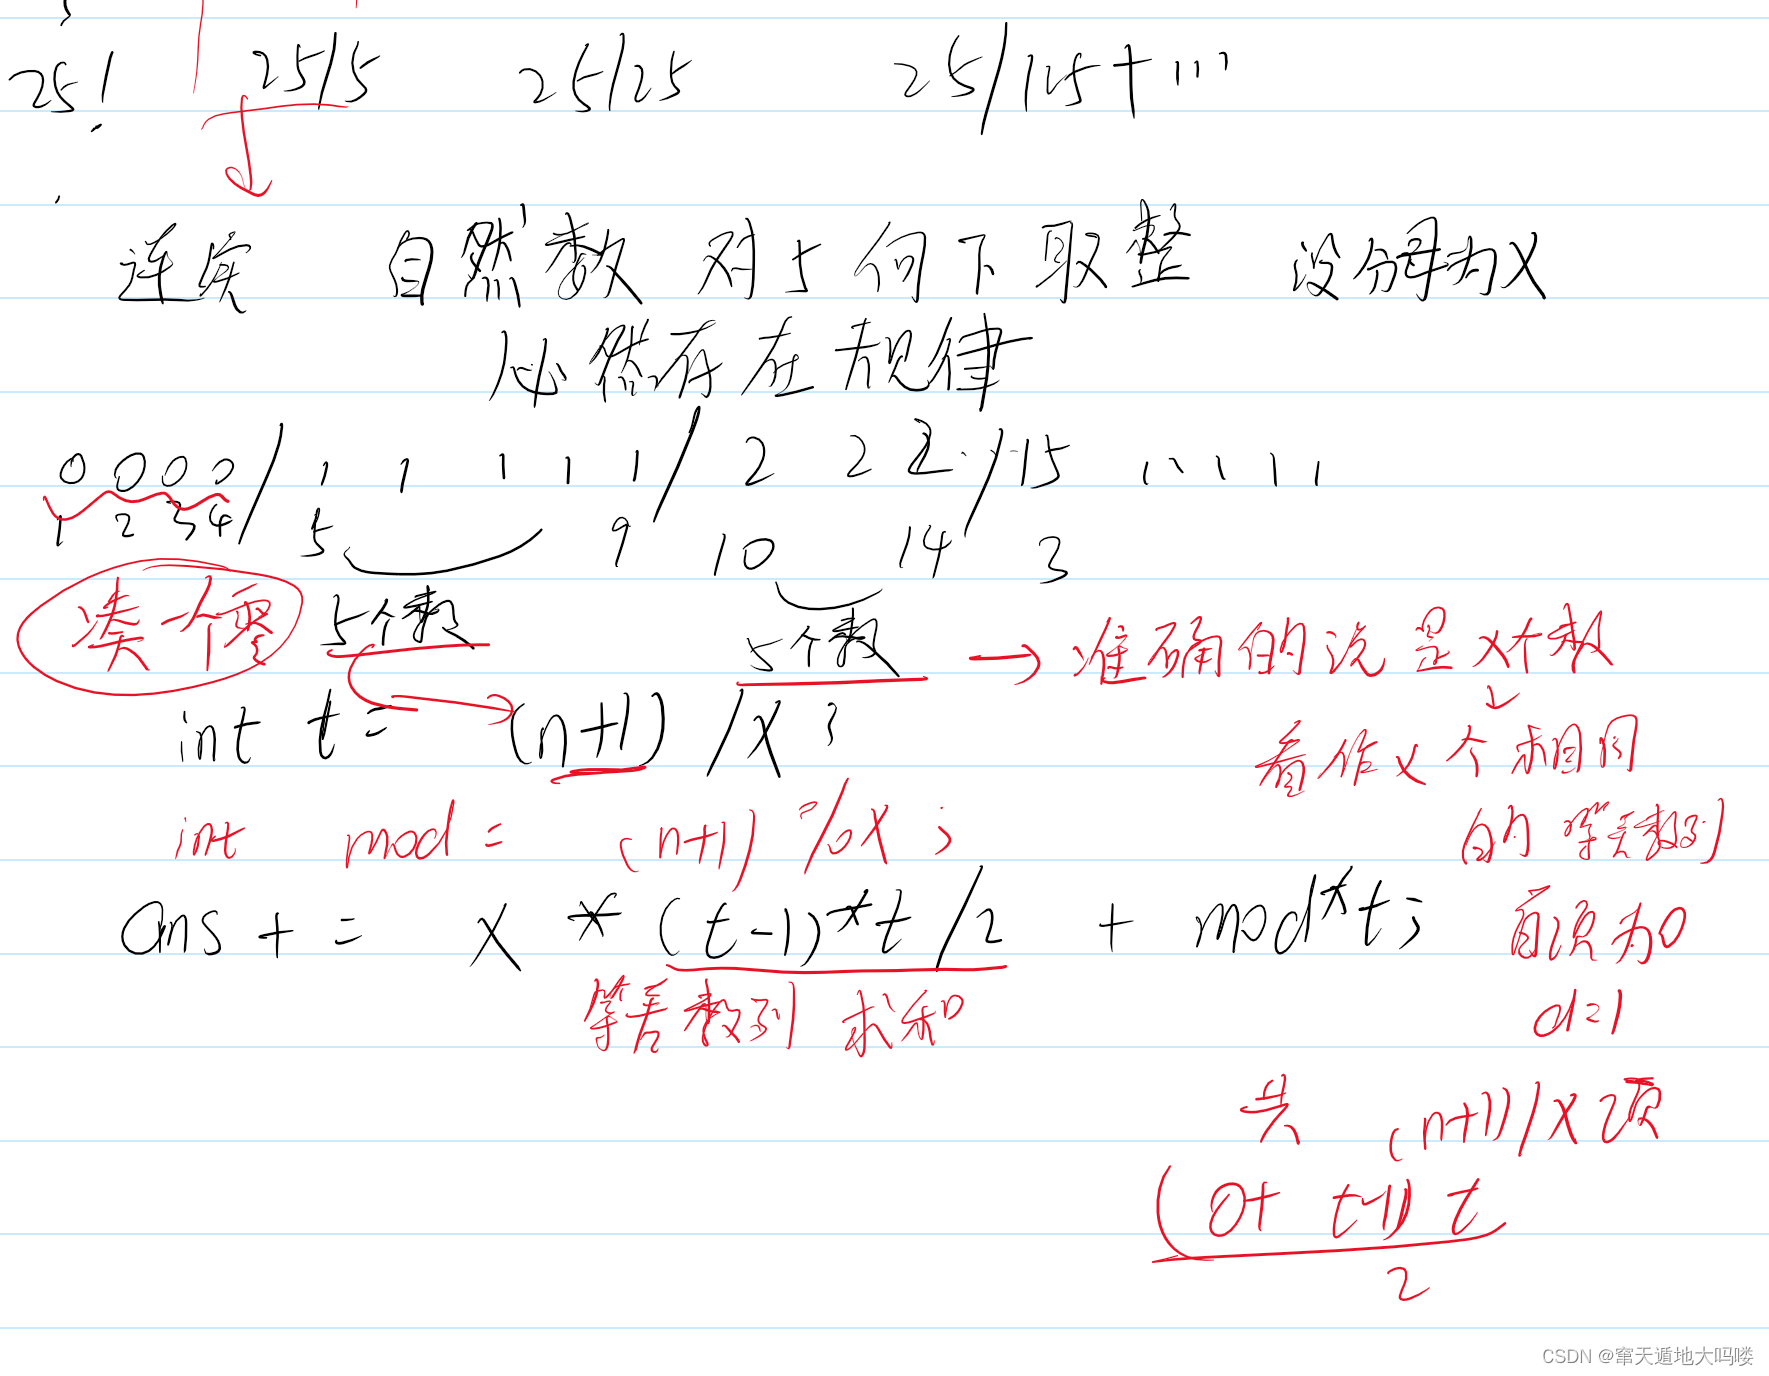 25! 25/5 25/25 25/125+...
连续 自然数 对5向下取整 设分母为X
必然存在规律
0 0 0 0 / 1 1 1 1 1 / 2 2 2 .../ 15
1 2 3 4 5 9 10 14 3
凑一个零 5个数 5个数 → 准确的说是x个数
int t = (n+1) /X ; 看作x个相同
int mod = (n+1) %X ; 的等差数列
ans += X * (t-1)*t/2 + mod*t; 首项为0
等差数列求和 d=1
共 (n+1)/X项
(0+ t-1) t
2
CSDN @窜天遁地大吗喽